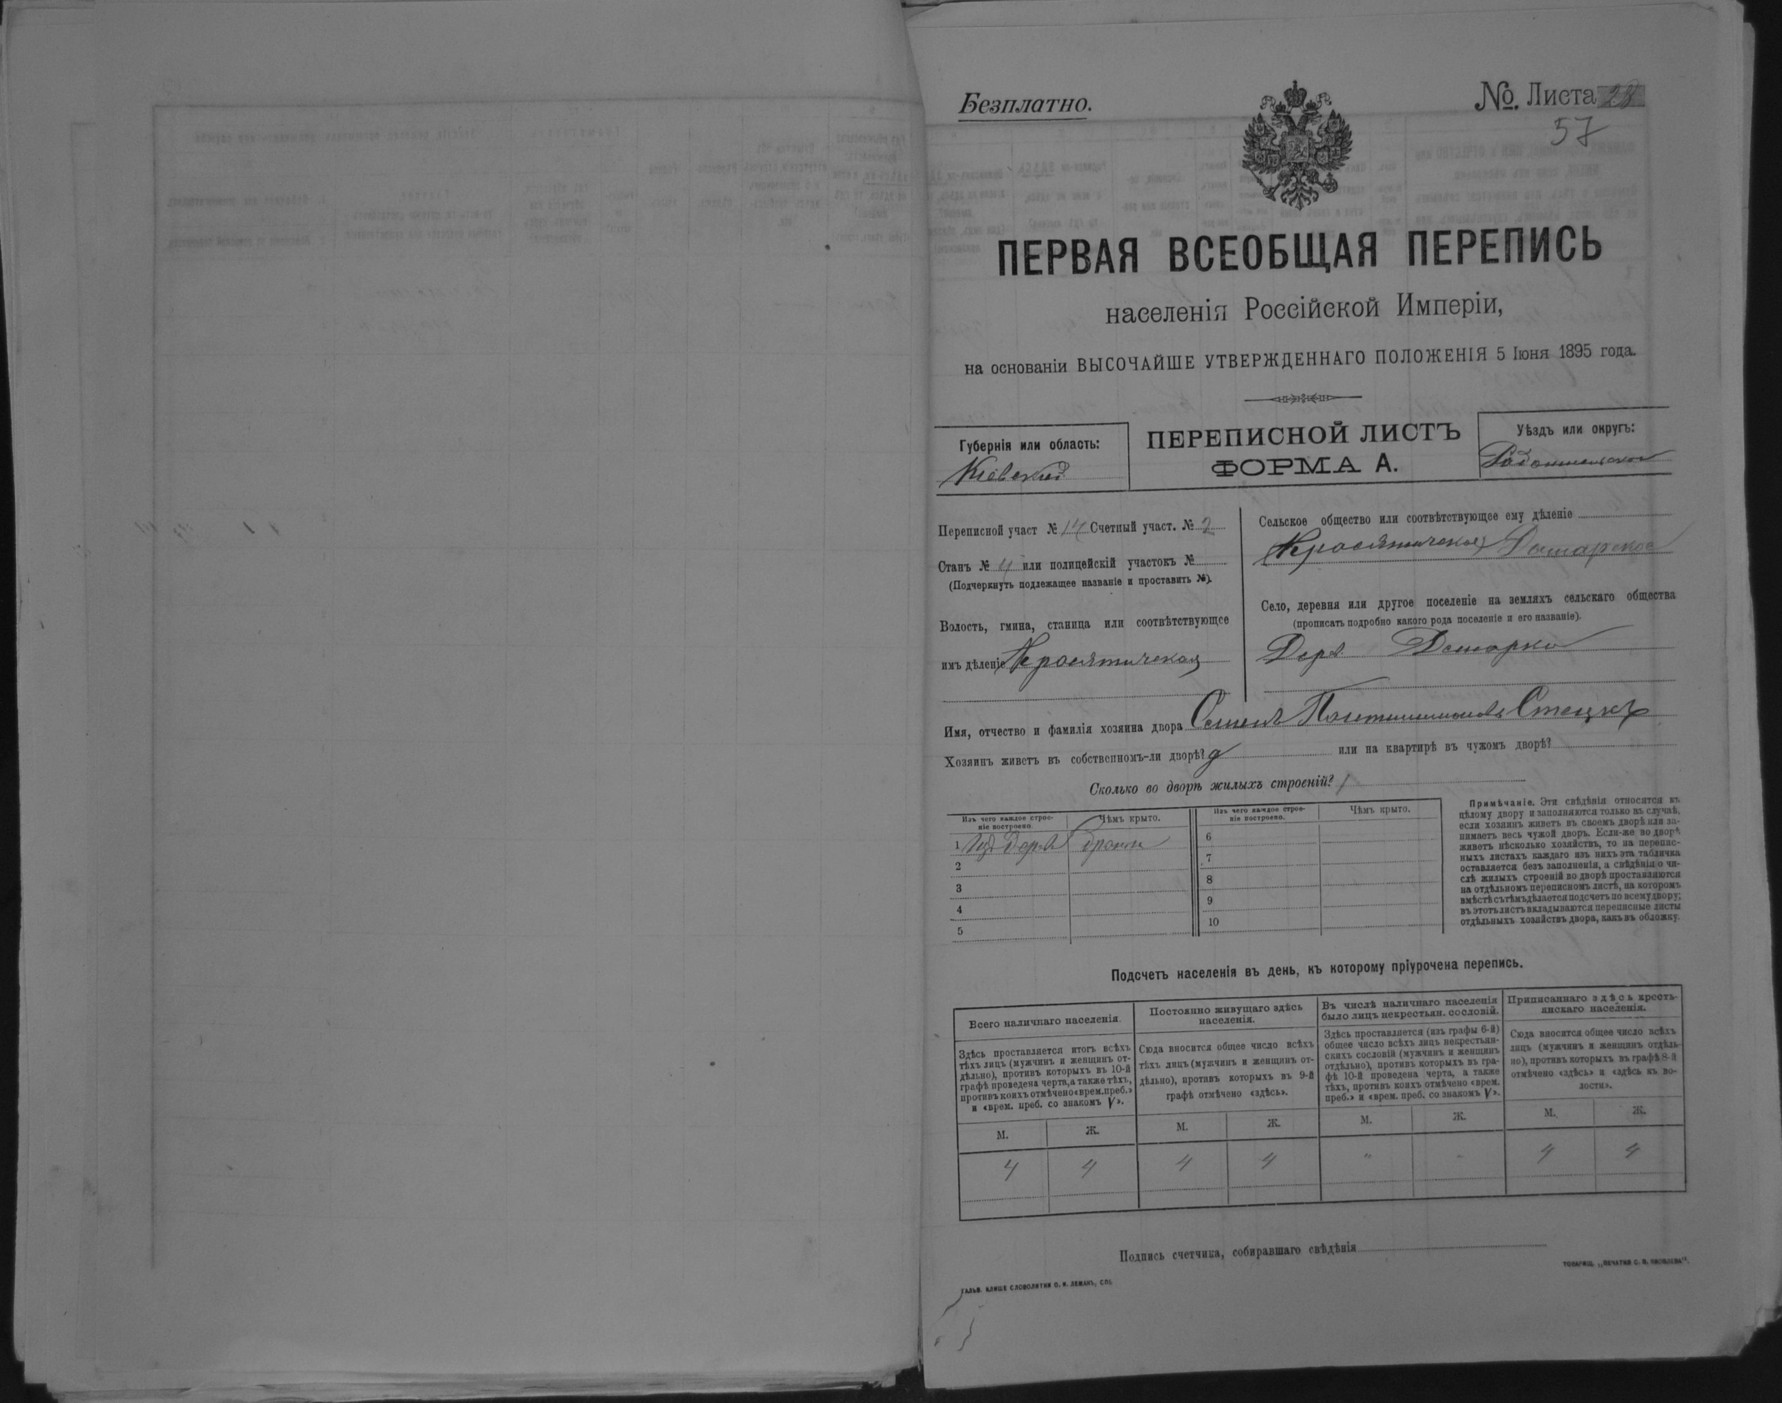 Безплатно.
№ Листа 28
57
ПЕРВАЯ ВСЕОБЩАЯ ПЕРЕПИСЬ
населенія Россійской Имперіи,
на основаніи ВЫСОЧАЙШЕ УТВЕРЖДЕННАГО ПОЛОЖЕНІЯ 5 Іюня 1895 года.
Губернія или область:
Кіевская
ПЕРЕПИСНОЙ ЛИСТЪ
ФОРМА А.
Уѣздъ или округъ:
Переписной участ № 14 Счетный участ. № 2
Станъ № 4 или полицейскій участокъ №
(Подчеркнуть подлежащее названіе и проставить №).
Волость, гмина, станица или соотвѣтствующее
имъ дѣленіе
Сельское общество или соотвѣтствующее ему дѣленіе
Село, деревня или другое поселеніе на земляхъ сельскаго общества
(прописать подробно какого рода поселеніе и его названіе).
Имя, отчество и фамилія хозяина двора
Хозяинъ живетъ въ собственномъ-ли дворѣ? д или на квартирѣ въ чужомъ дворѣ?
Сколько во дворѣ жилыхъ строеній? 1
Изъ чего каждое строе-
ніе построено.
Чѣмъ крыто.
Изъ чего каждое строе-
ніе построено.
Чѣмъ крыто.
1 Изъ дерева
2
3
4
5
6
7
8
9
10
Примѣчаніе. Эти свѣдѣнія относятся къ
цѣлому двору и заполняются только въ случаѣ,
если хозяинъ живетъ въ своемъ дворѣ или за-
нимаетъ весь чужой дворъ. Если-же во дворѣ
живетъ нѣсколько хозяйствъ, то на перепис-
ныхъ листахъ каждаго изъ нихъ эта табличка
оставляется безъ заполненія, а свѣдѣнія о чи-
слѣ жилыхъ строеній во дворѣ проставляются
на отдѣльномъ переписномъ листѣ, на которомъ
вмѣстѣ съ тѣмъ дѣлается подсчетъ по всему двору;
въ этотъ листъ вкладываются переписные листы
отдѣльныхъ хозяйствъ двора, какъ въ обложку.
Подсчетъ населенія въ день, къ которому пріурочена перепись.
Всего наличнаго населенія.
Здѣсь проставляется итогъ всѣхъ
тѣхъ лицъ (мужчинъ и женщинъ от-
дѣльно), противъ которыхъ въ 10-й
графѣ проведена черта, а также тѣхъ,
противъ коихъ отмѣчено «врем. преб.»
и «врем. преб. со знакомъ V».
Постоянно живущаго здѣсь
населенія.
Сюда вносится общее число всѣхъ
тѣхъ лицъ (мужчинъ и женщинъ от-
дѣльно), противъ которыхъ въ 9-й
графѣ отмѣчено «здѣсь».
Въ числѣ наличнаго населенія
было лицъ некрестьян. сословій.
Здѣсь проставляется (изъ графы 6-й)
общее число всѣхъ лицъ некрестьян-
скихъ сословій (мужчинъ и женщинъ
отдѣльно), противъ которыхъ въ гра-
фѣ 10-й проведена черта, а также
тѣхъ, противъ коихъ отмѣчено «врем.
преб.» и «врем. преб. со знакомъ V».
Приписаннаго здѣсь кресть-
янскаго населенія.
Сюда вносится общее число всѣхъ
лицъ (мужчинъ и женщинъ отдѣль-
но), противъ которыхъ въ графѣ 8-й
отмѣчено «здѣсь» и «здѣсь къ во-
лости».
М. Ж. М. Ж. М. Ж. М. Ж.
4 4 4 4 " " 4 4
Подпись счетчика, собиравшаго свѣдѣнія
ГАЛЬВ. КЛИШЕ СЛОВОЛИТНИ О. И. ЛЕМАНЪ, СПБ.
ТОВАРИЩ. „ПЕЧАТНЯ С. П. ЯКОВЛЕВА".